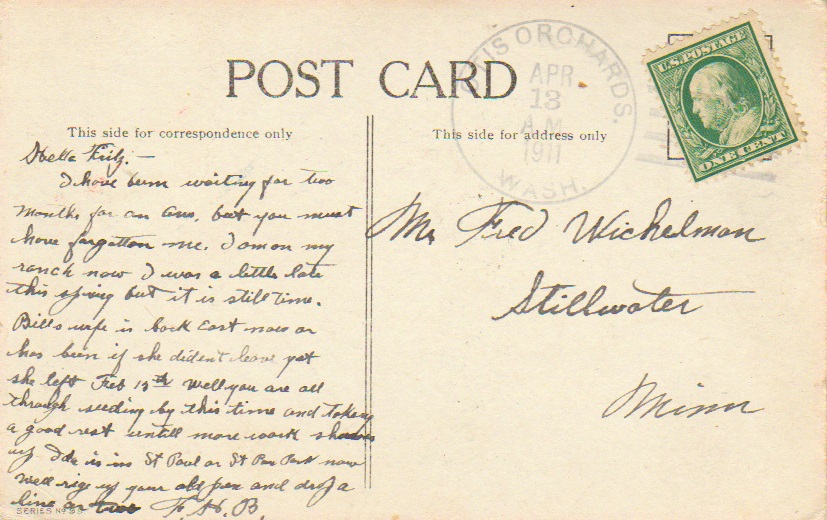 POST CARD
This side for correspondence only
Hello Fritz. —
I have been waiting for two
months for an ans, but you must
have forgotten me. I am on my
ranch now I was a little late
this spring but it is still time.
Bills wife is back East now or
has been if she dident leave yet
she left Feb 15th Well you are all
through seeding by this time and taking
a good rest untill more work shows
up Ida is in St Paul or St Pau Park now
well rig up your old pen and drop a
line or two F. H. B.
SERIES No
This side for address only
OTIS ORCHARDS.
APR
13
A.M.
1911
WASH.
U.S. POSTAGE
ONE CENT
Mr Fred Wichelman
Stillwater
Minn